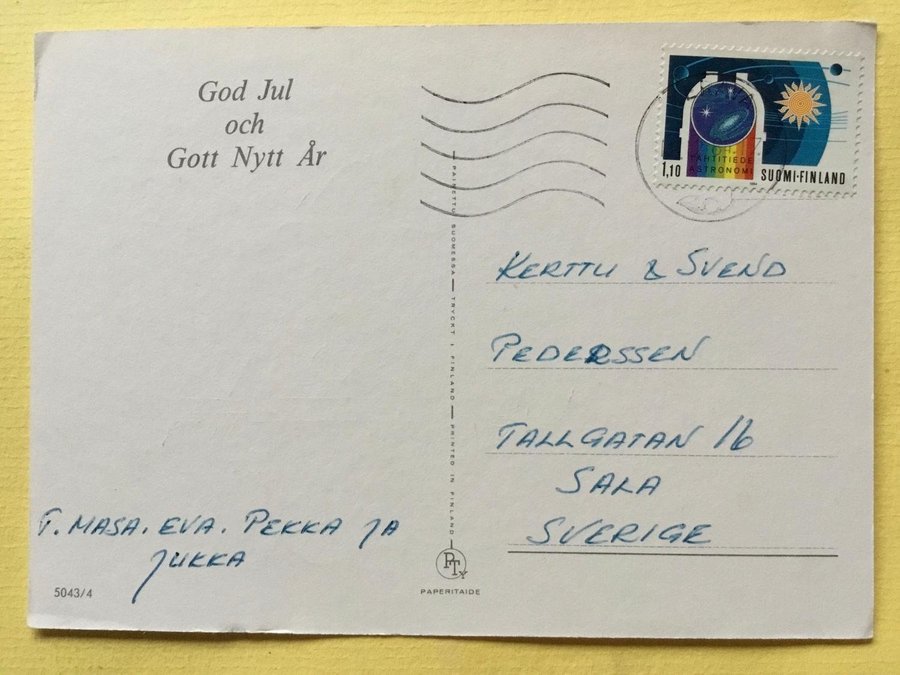 God Jul
och
Gott Nytt År
TÄHTITIEDE
ASTRONOMI
1,10 SUOMI-FINLAND
PAINETTU SUOMESSA — TRYCKT I FINLAND — PRINTED IN FINLAND
KERTTU & SVEND
PEDERSSEN
TALLGATAN 16
SALA
SVERIGE
T. MASA. EVA. PEKKA JA
JUKKA
5043/4
PTy
PAPERITAIDE